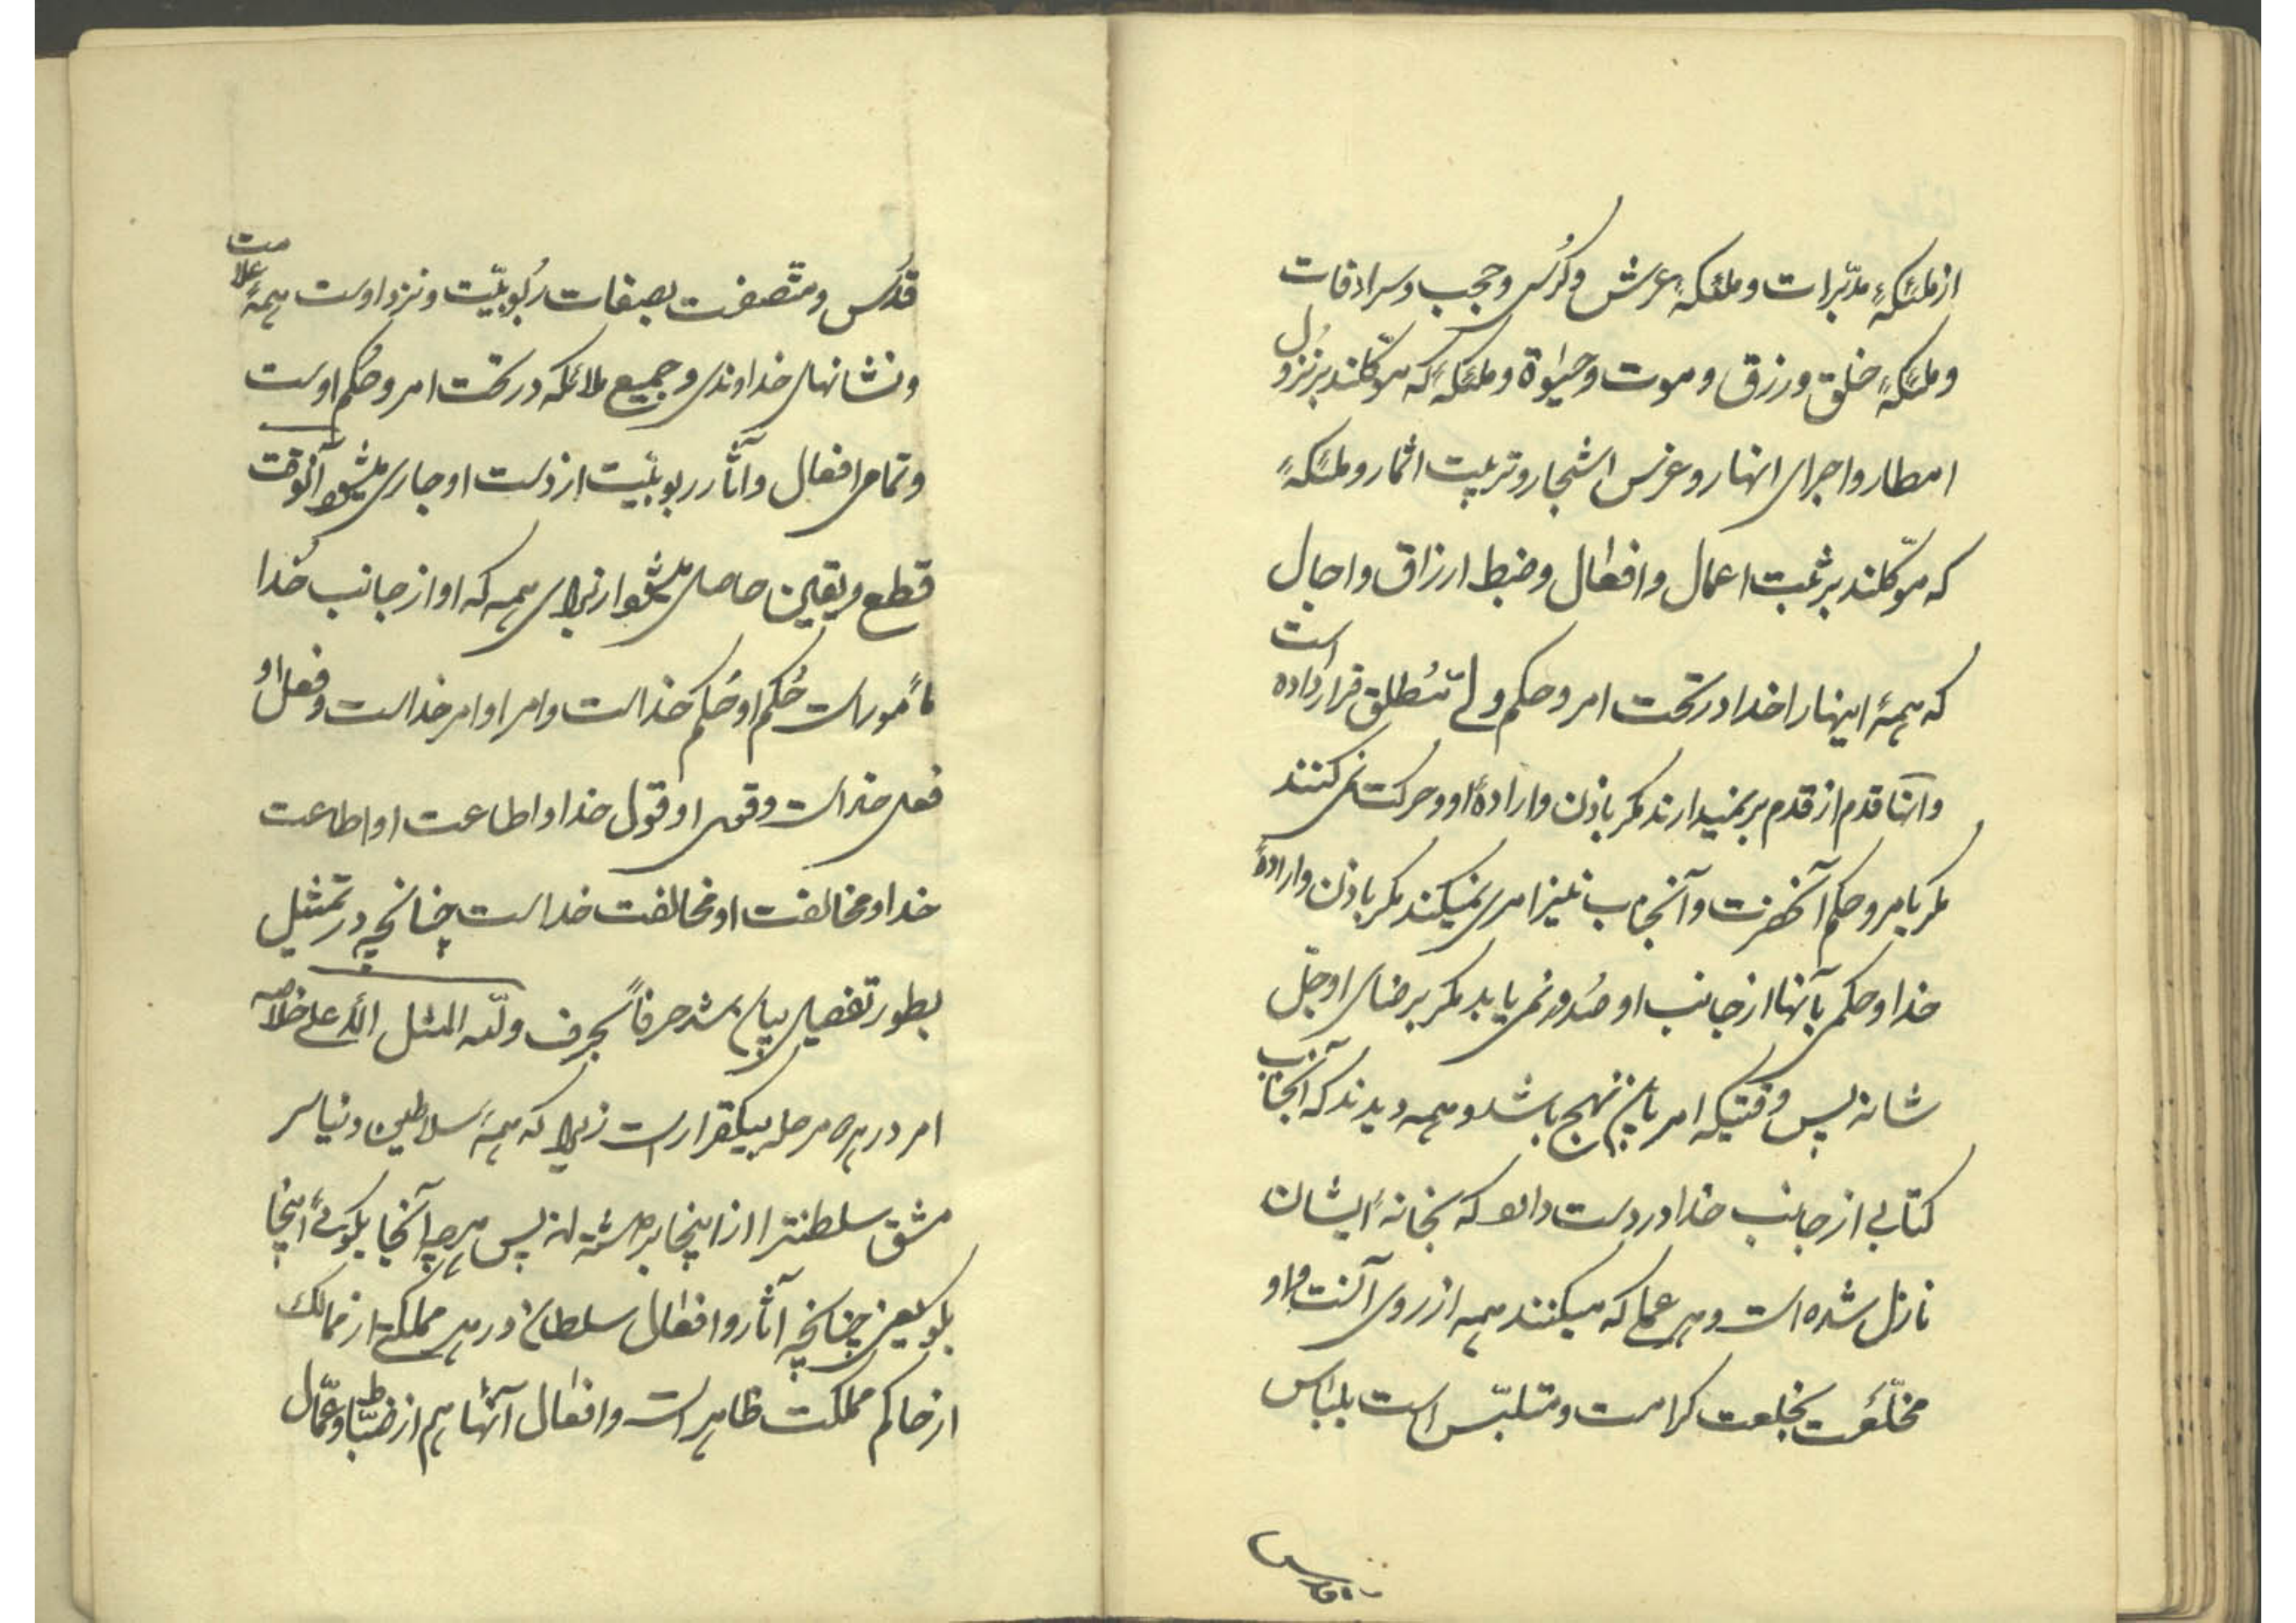 از ملئکهٔ مدبّرات و ملئکهٔ عرش و کُرسی و حجب و سرادقات
و ملئکهٔ خلق و رزق و موت و حیوٰة و ملئکهٔ که موکّلند بر نزول
امطار و اجرای انهار و غرس اشجار و تربیت اثمار و ملئکهٔ
که موکّلند بر ثبت اعمال و افعال و ضبط ارزاق و اجال
که همهٔ اینها را خدا در تحت امر و حکم ولیّ مُطلق قرار داده است
و آنها قدم از قدم بر نمیدارند مگر باذن و ارادهٔ او و حرکت نمی کنند
مگر بامر و حکم آنحضرت و آنجناب نیز امری نمیکند مگر باذن و ارادهٔ
خدا و حکمی بآنها از جانب او صُدور نمی یابد مگر برضای او جلّ
شانه پس وقتیکه امر باین نهج باشد و همه دیدند که آنجناب
کتابی از جانب خدا در دست دارد که بخانهٔ ایشان
نازل شده است و هر عملی که میکنند همه از روی آنست و او
مخلّعست بخلعت کرامت و متلبّس است بلباس
قدس
قدُس و متّصفست بصفات رُبُوبیّت و نزد اوست همهٔ علامت
و نشانهای خداوندی و جمیع ملائکه در تحت امر و حُکم اوست
و تمامی افعال و آثار ربوبیّت از دست او جاری میشود آنوقت
قطع و یقین حاصل میشود از برای همه که او از جانب خُدا
مأموراست حُکم او حُکم خداست و امر او امر خداست و فعل او
فعل خداست و قول او قول خدا و اطاعت او اطاعت
خدا و مخالفت او مخالفت خداست چنانچه در تمثیل
بطور تفصیل بیان شد حرفاً بحرف و للّه المثل الأعلی خلاصه
امر در هر مرحله بیکقرار است زیرا که همهٔ سلاطین دنیا سر
مشق سلطنترا از اینجا برداشته اند پس هرچه آنجا بگوئی اینجا
بگو یعنی چنانچه آثار و افعال سلطان در هر مملکتی از ممالک
از حاکم مملکت ظاهر است و افعال آنها هم از ضبّاط و عمّال